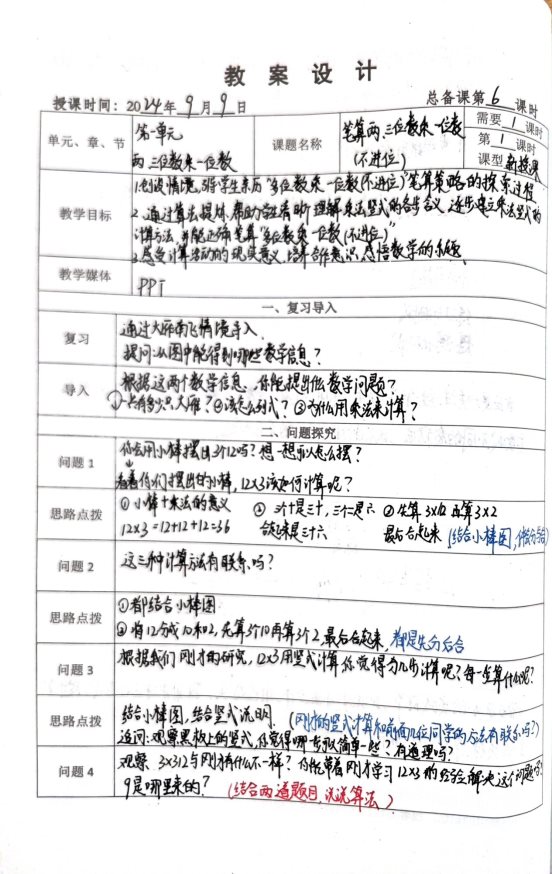 教案设计
授课时间：2024年9月9日 总备课第6课时
单元、章、节 第一单元 两、三位数乘一位数 课题名称 笔算两、三位数乘一位数(不进位) 需要1课时
第1课时
课型 新授课
教学目标 1.创设情境，引导学生亲历“多位数乘一位数(不进位)”笔算策略的探索过程
2.通过算法提炼，帮助学生清晰理解乘法竖式的各步含义，逐步建立乘法竖式的
计算方法，并能正确笔算“多位数乘一位数(不进位)”
3.感受计算活动的现实意义，培养合作意识，感悟数学的乐趣
教学媒体 PPT
一、复习导入
复习 通过大雁南飞情境导入
提问：从图中能得到哪些数学信息？
导入 根据这两个数学信息，你能提出什么数学问题？
①一共有多少只大雁？②该怎么列式？③为什么用乘法来计算？
二、问题探究
问题1 你会用小棒摆出3个12吗？想一想可以怎么摆？
看着你们摆出的小棒，12×3该如何计算呢？
思路点拨 ①小棒+乘法的意义 ②3个十是三十，三个二是六 ③先算3×10再算3×2
12×3=12+12+12=36 合起来是三十六 最后合起来 (结合小棒图，
问题2 这三种计算方法有联系吗？
思路点拨 ①都结合小棒图
②将12分成10和2，先算3个10再算3个2，最后合起来，都是先分后合
问题3 根据我们刚才的研究，12×3用竖式计算你觉得分几步计算呢？每一步算什么呢？
思路点拨 结合小棒图，结合竖式说明 (刚才的竖式计算和前面几位同学的方法有联系吗？)
追问：观察黑板上的竖式，你觉得哪一步可以简单一些？有道理吗？
问题4 观察 3×312与刚才有什么不一样？你能带着刚才学习12×3的经验解决这个问题吗？
9是哪里来的？ (结合两道题目，说说算法)